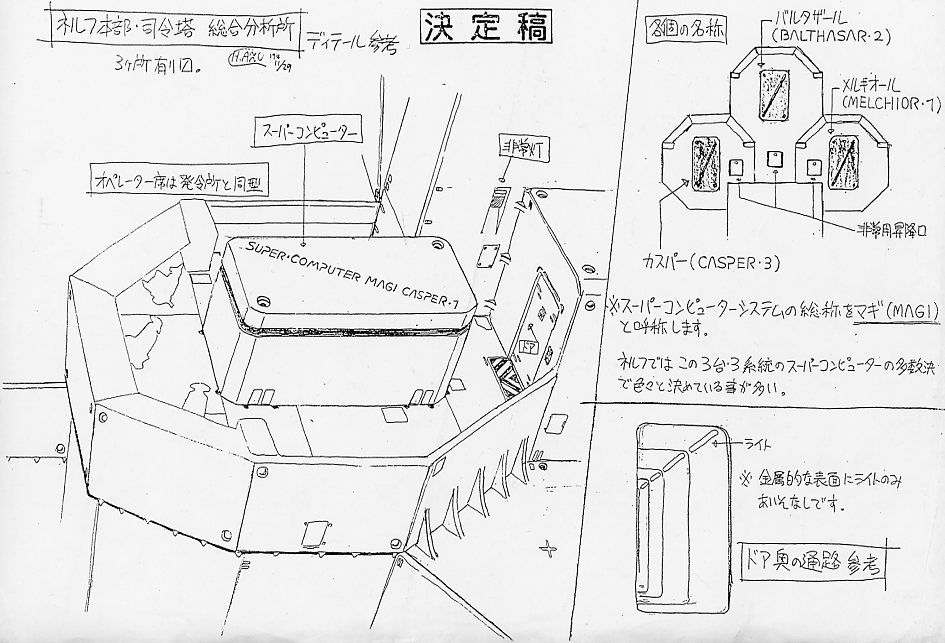 ネルフ本部・司令塔 総合分析所
ディテール参考
3ヶ所有り〼。
決定稿
スーパーコンピューター
非常灯
オペレーター席は発令所と同型
SUPER・COMPUTER MAGI CASPER・1
ドア
各個の名称
バルタザール
(BALTHASAR・2)
メルキオール
(MELCHIOR・1)
非常用昇降口
カスパー(CASPER・3)
※スーパーコンピューターシステムの総称をマギ(MAGI)
と呼称します。
ネルフではこの3台・3系統のスーパーコンピューターの多数決
で色々と決めている事が多い。
ライト
※ 金属的な表面にライトのみ
あいそなしです。
ドア奥の通路 参考